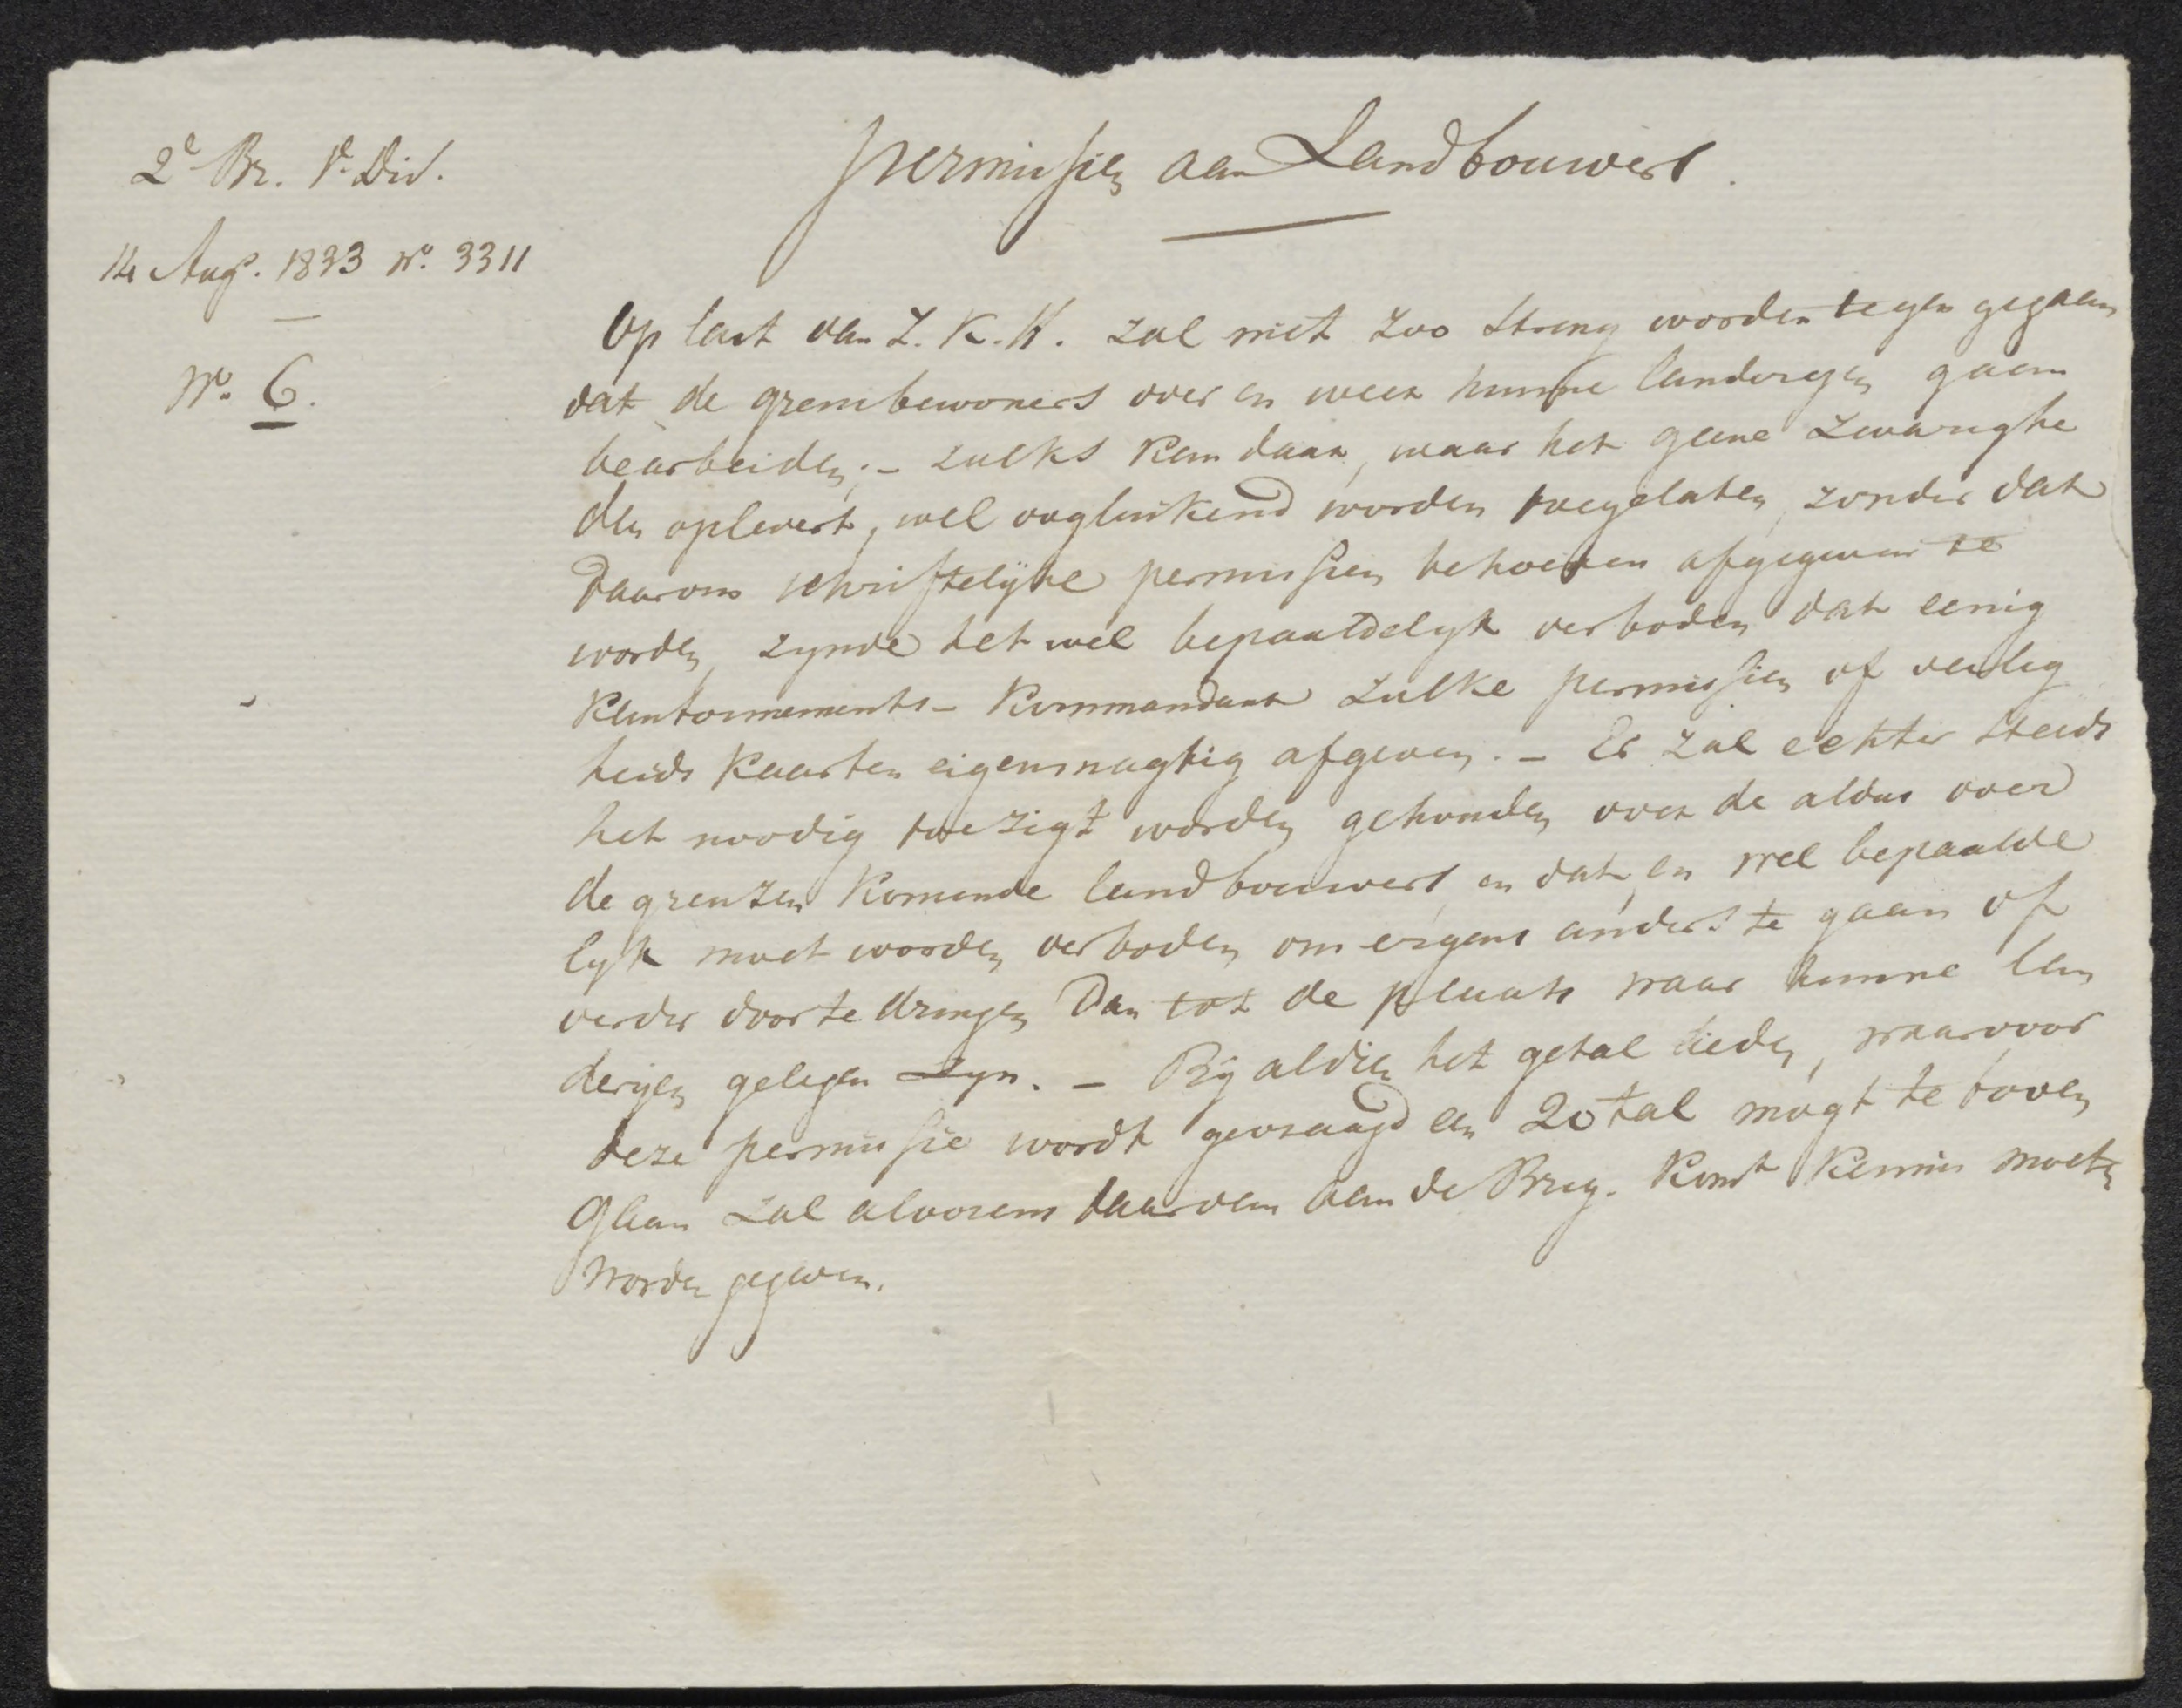 2e Br. 1e Div.
14 Augs. 1833 No. 3311
No. 6.
Permissien aan Landbouwers.
Op last van Z. K. H. zal niet zoo streng worden tegen gegaan
dat de grensbewoners over en weer hunne landeryen gaan
bearbeiden; - zulks kan daar, waar het geene zwarighe
den oplevert, wel oogluikend worden toegelaten, zonder dat
daarom schriftelyke permissien behoeven afgegeven te
worden, zynde het wel bepaaldelyk verboden dat eenig
Kantonnements-Kommandant zulke permissien of veilig
heids kaarten eigenmagtig afgeven. - Er zal echter steeds
het noodig toezigt worden gehouden over de aldus over
de grenzen komende landbouwers, en dat, en wel bepaalde
lyk moet worden verboden om ergens anders te gaan of
verder door te dringen dan tot de plaats waar hunne lan
deryen gelegen zyn. - By aldien het getal lieden, waarvoor
deze permissie wordt gevraagd een 20tal mogt te boven
gaan zal alvorens daarvan aan de Brig. Komt kennis moeten
worden gegeven.